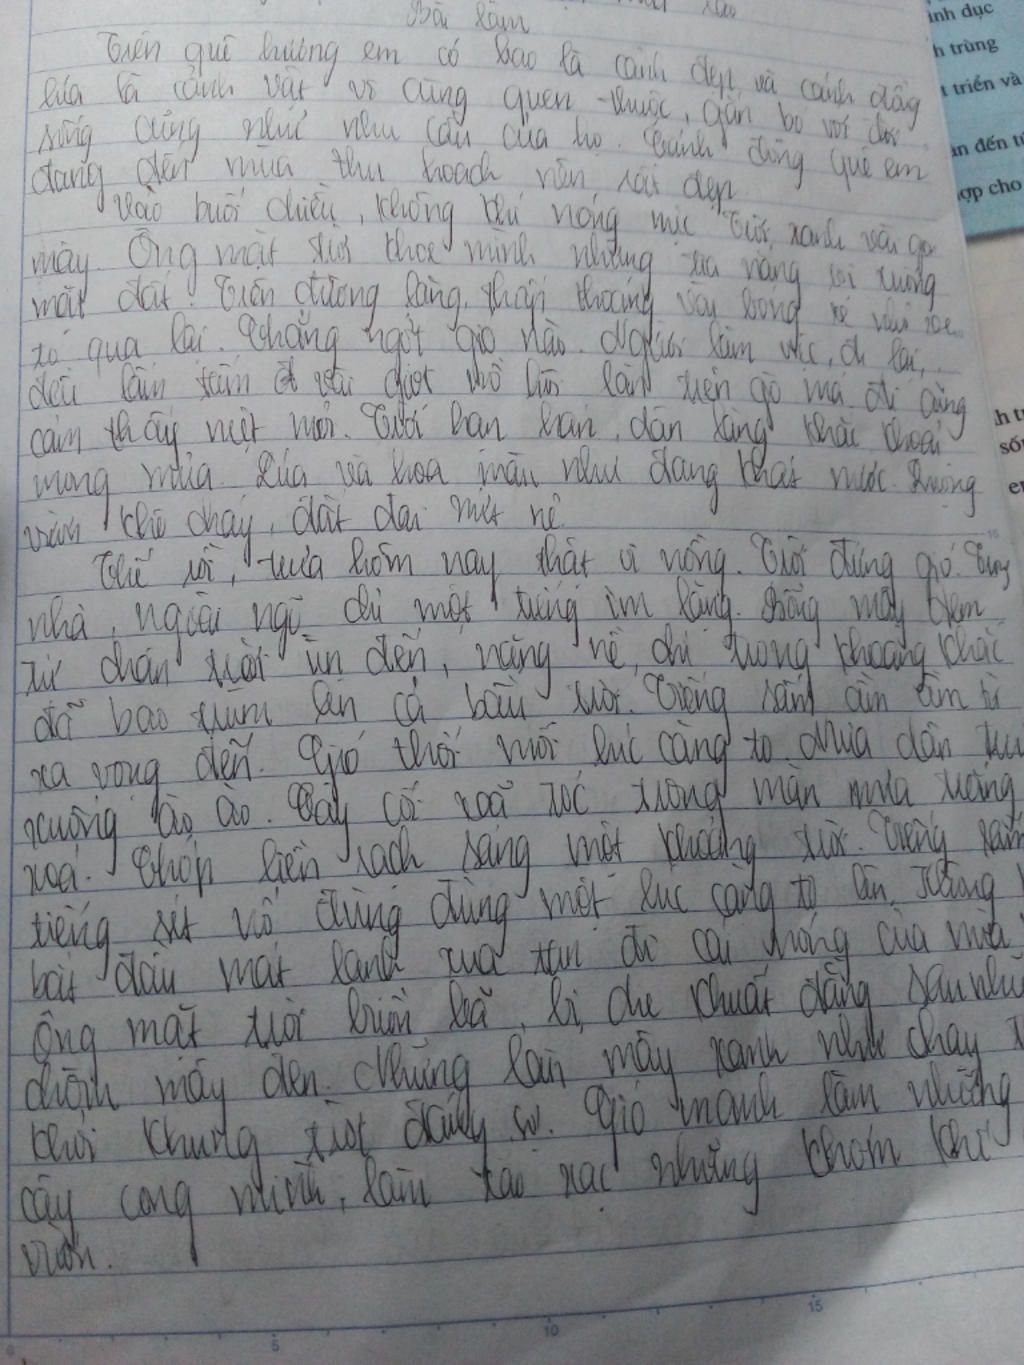 Bài làm
Trên quê hương em có bao là cảnh đẹp, và cánh đồng
lúa là cảnh vật vô cùng quen thuộc, gắn bó với đời
sống cũng như nhu cầu của họ. Cánh đồng quê em
đang đến mùa thu hoạch nên rất đẹp
Vào buổi chiều, không khí nóng nực Trời xanh vài gợn
mây. Ông mặt trời khoe mình những tia nắng rọi xuống
mặt đất. Trên đường làng, thấp thoáng vài bóng xe
to qua lại. Chẳng ngọt gió nào. Người làm việc, đi lại,
đều lấm tấm vài giọt mồ hôi lăn trên gò má. đi cũng
cảm thấy mệt mỏi. Trời hạn hán, dân làng khắc khoải
mong mưa. Lúa và hoa màu như đang khát nước. Ruộng
vườn khô cháy, đất đai nứt nẻ
Thế rồi, trưa hôm nay thật oi nồng. Trời đứng gió. Trong
nhà, người ngủ im lặng. Bỗng mây đen
từ chân trời ùn đến, nặng nề, chỉ trong khoảng khắc
đã bao trùm lên cả bầu trời. Tiếng sấm ầm ầm từ
xa vọng đến. Gió thổi mỗi lúc càng to Mưa dần trút
xuống ào ào. Cây cối xoã tóc trong màn mưa trắng
xoá. Chớp liên rạch sáng một khoảng trời. Tiếng sấm
tiếng sét nổ đùng đùng một lúc càng to lên, không
bắt đầu mát lạnh xua tan đi cái nóng của mùa
Ông mặt trời buồn bã, bị che khuất đằng sau những
chòm mây đen. Những làn mây xanh như chạy
khỏi khung trời đấy. Gió mạnh làm những
cây cong mình, làm xào xạc những khóm
vườn.
5
10
15
ình dục
h trùng
t triển và
ản đến
ợp cho